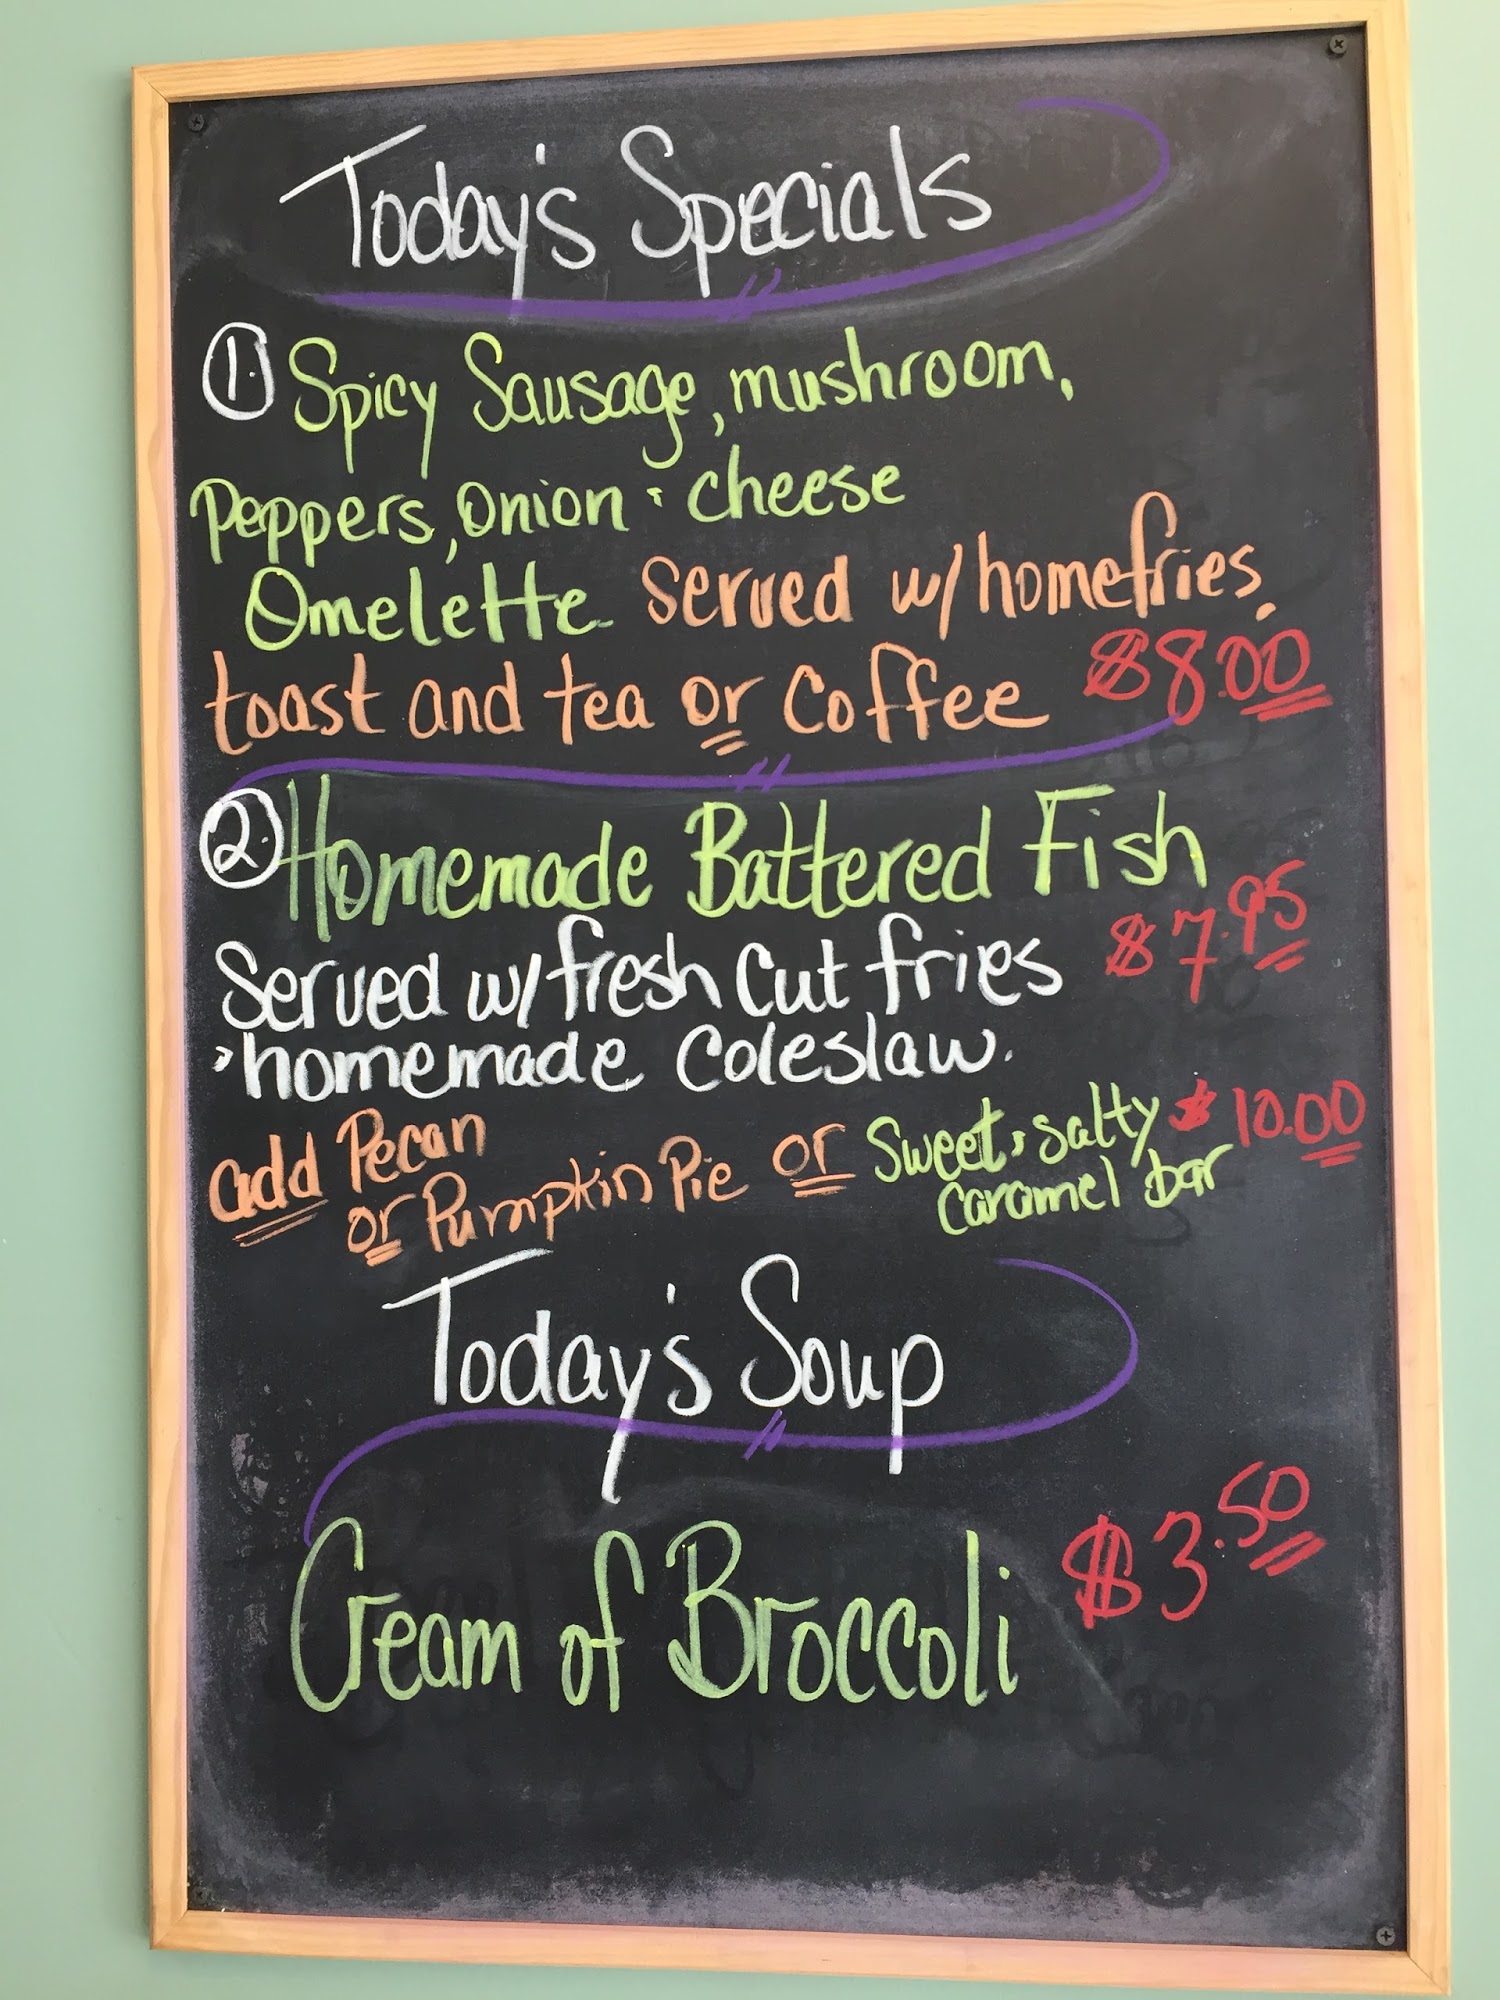 Today's Specials
1. Spicy Sausage, mushroom,
Peppers, onion & cheese
Omelette served w/ homefries,
toast and tea or coffee $8.00
2. Homemade Battered Fish
Served w/ fresh cut fries $7.95
& homemade Coleslaw.
add Pecan
or Pumpkin Pie or Sweet & salty $10.00
caramel bar
Today's Soup
Cream of Broccoli $3.50